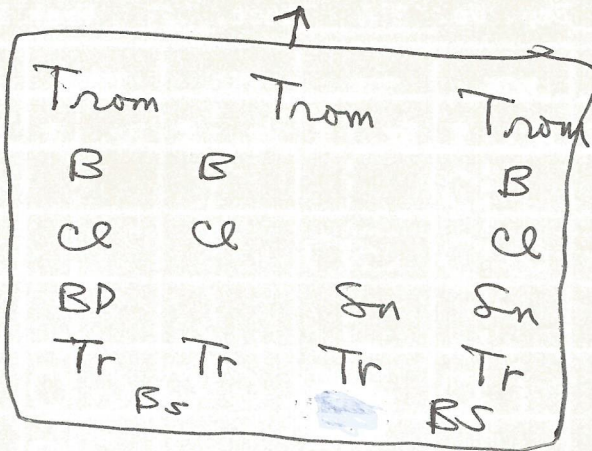 Trom Trom Trom
B B B
Cl Cl Cl
BD Sn Sn
Tr Tr Tr Tr
Bs BS